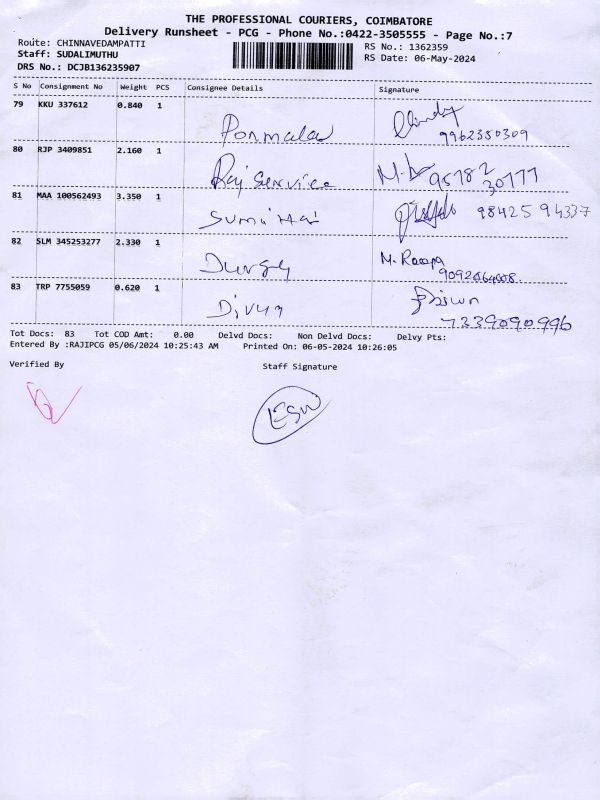 THE PROFESSIONAL COURIERS, COIMBATORE
Delivery Runsheet - PCG - Phone No.:0422-3505555 - Page No.:7
Route: CHINNAVEDAMPATTI RS No.: 1362359
Staff: SUDALIMUTHU RS Date: 06-May-2024
DRS No.: DCJB136235907
S No Consignment No Weight PCS Consignee Details Signature
79 KKU 337612 0.840 1
Ponmala
9962350309
80 RJP 3409851 2.160 1
Raj Service M. 95782
30777
81 MAA 100562493 3.350 1
Sumithai 98425 94337
82 SLM 345253277 2.330 1
Durga M. Roopa
83 TRP 7755059 0.620 1
Divya
7339090996
Tot Docs: 83 Tot COD Amt: 0.00 Delvd Docs: Non Delvd Docs: Delvy Pts:
Entered By :RAJIPCG 05/06/2024 10:25:43 AM Printed On: 06-05-2024 10:26:05
Verified By Staff Signature
ESW